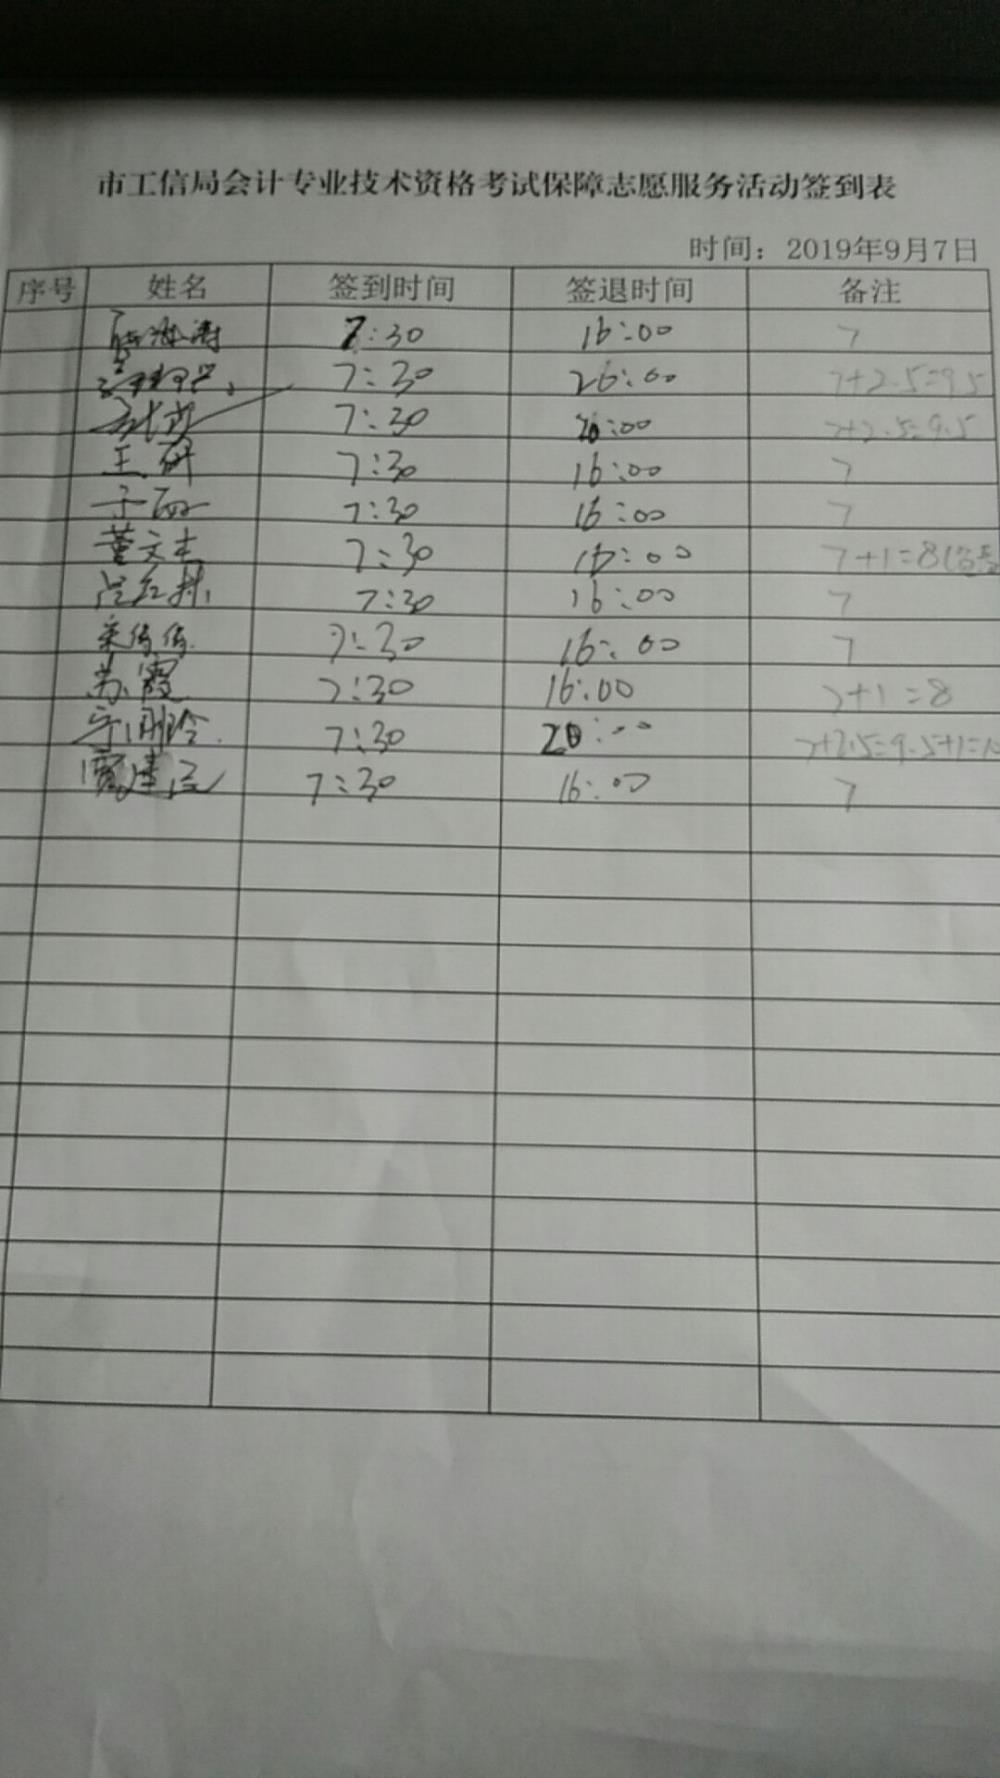 市工信局会计专业技术资格考试保障志愿服务活动签到表
时间：2019年9月7日
序号 姓名 签到时间 签退时间 备注
7:30 16:00 7
7:30 20:00 7+2.5=9.5
7:30 20:00 7+2.5=9.5
王研 7:30 16:00 7
于 7:30 16:00 7
董文 7:30 16:00 7+1=8
7:30 16:00 7
7:30 16:00 7
苏霞 7:30 16:00 7+1=8
7:30 20:00 7+2.5=9.5+1=
7:30 16:00 7